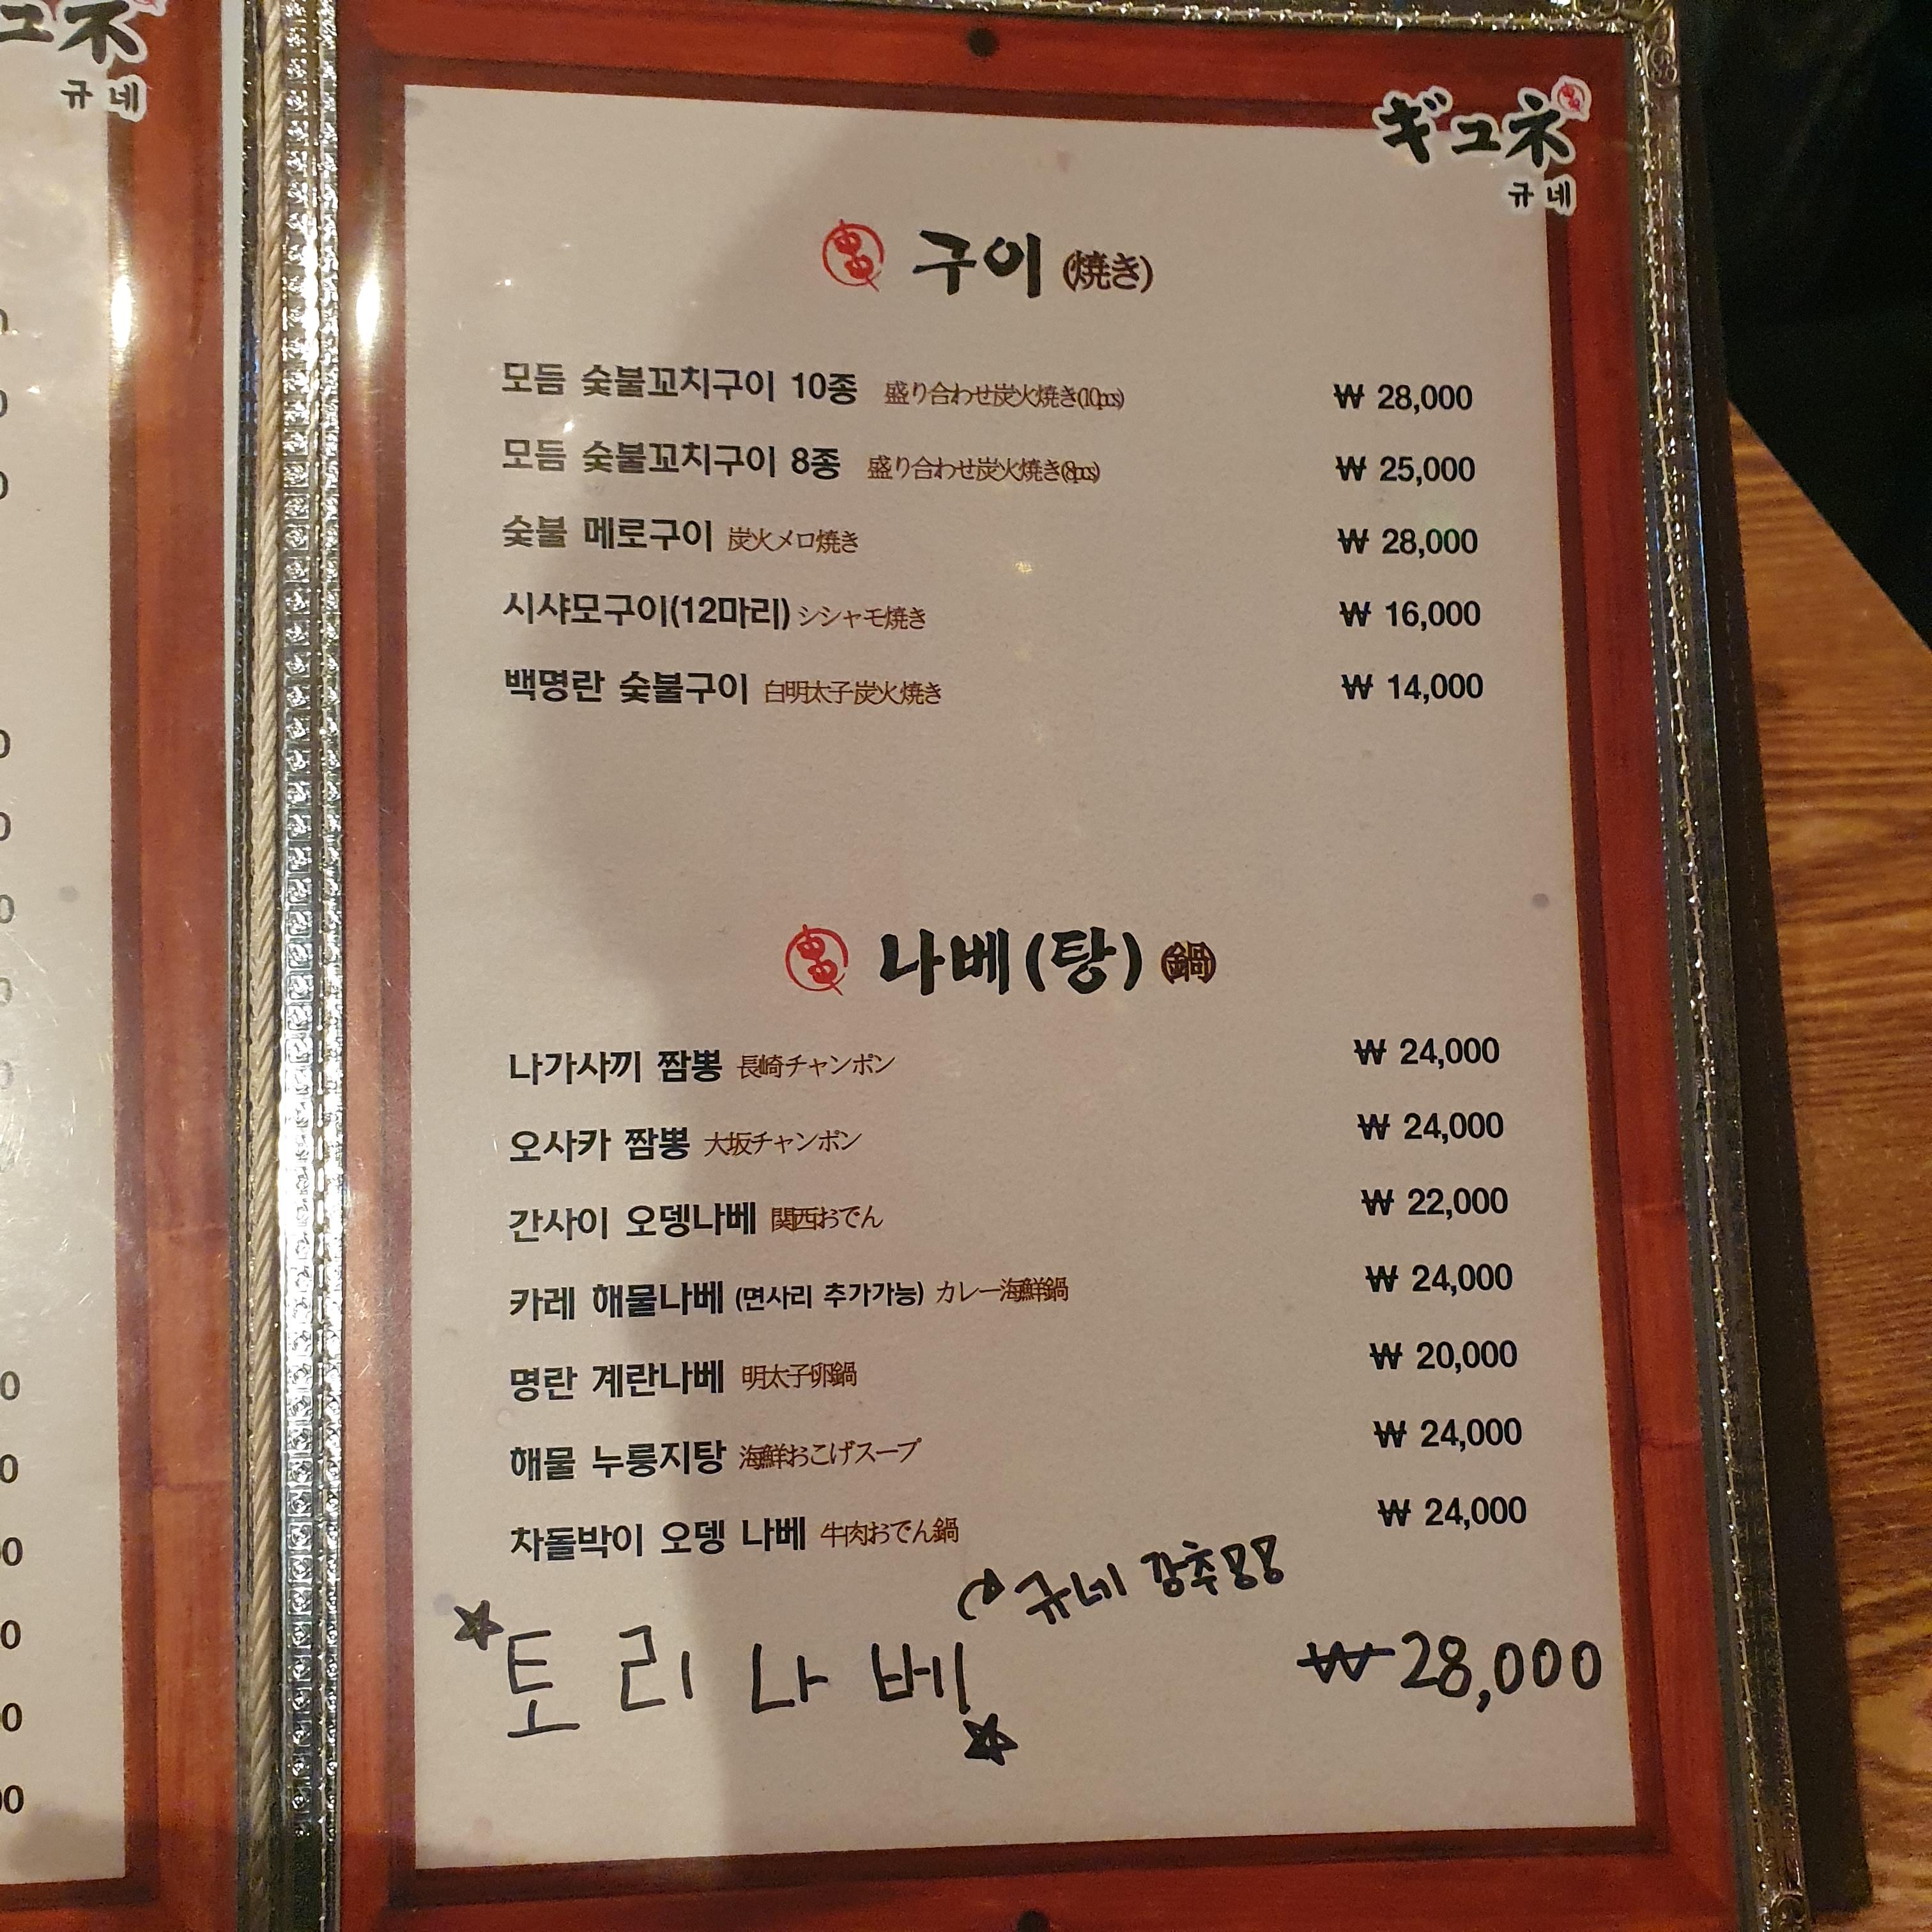 ュネ
규네
ギュネ
규네
구이 (焼き)
모듬 숯불꼬치구이 10종 盛り合わせ炭火焼き(10pcs) ₩ 28,000
모듬 숯불꼬치구이 8종 盛り合わせ炭火焼き(8pcs) ₩ 25,000
숯불 메로구이 炭火メロ焼き ₩ 28,000
시샤모구이(12마리) シシャモ焼き ₩ 16,000
백명란 숯불구이 白明太子炭火焼き ₩ 14,000
나베(탕) (鍋)
나가사끼 짬뽕 長崎チャンポン ₩ 24,000
오사카 짬뽕 大坂チャンポン ₩ 24,000
간사이 오뎅나베 関西おでん ₩ 22,000
카레 해물나베 (면사리 추가가능) カレー海鮮鍋 ₩ 24,000
명란 계란나베 明太子卵鍋 ₩ 20,000
해물 누룽지탕 海鮮おこげスープ ₩ 24,000
차돌박이 오뎅 나베 牛肉おでん鍋 ₩ 24,000
규네 강추
토리나베 ₩28,000